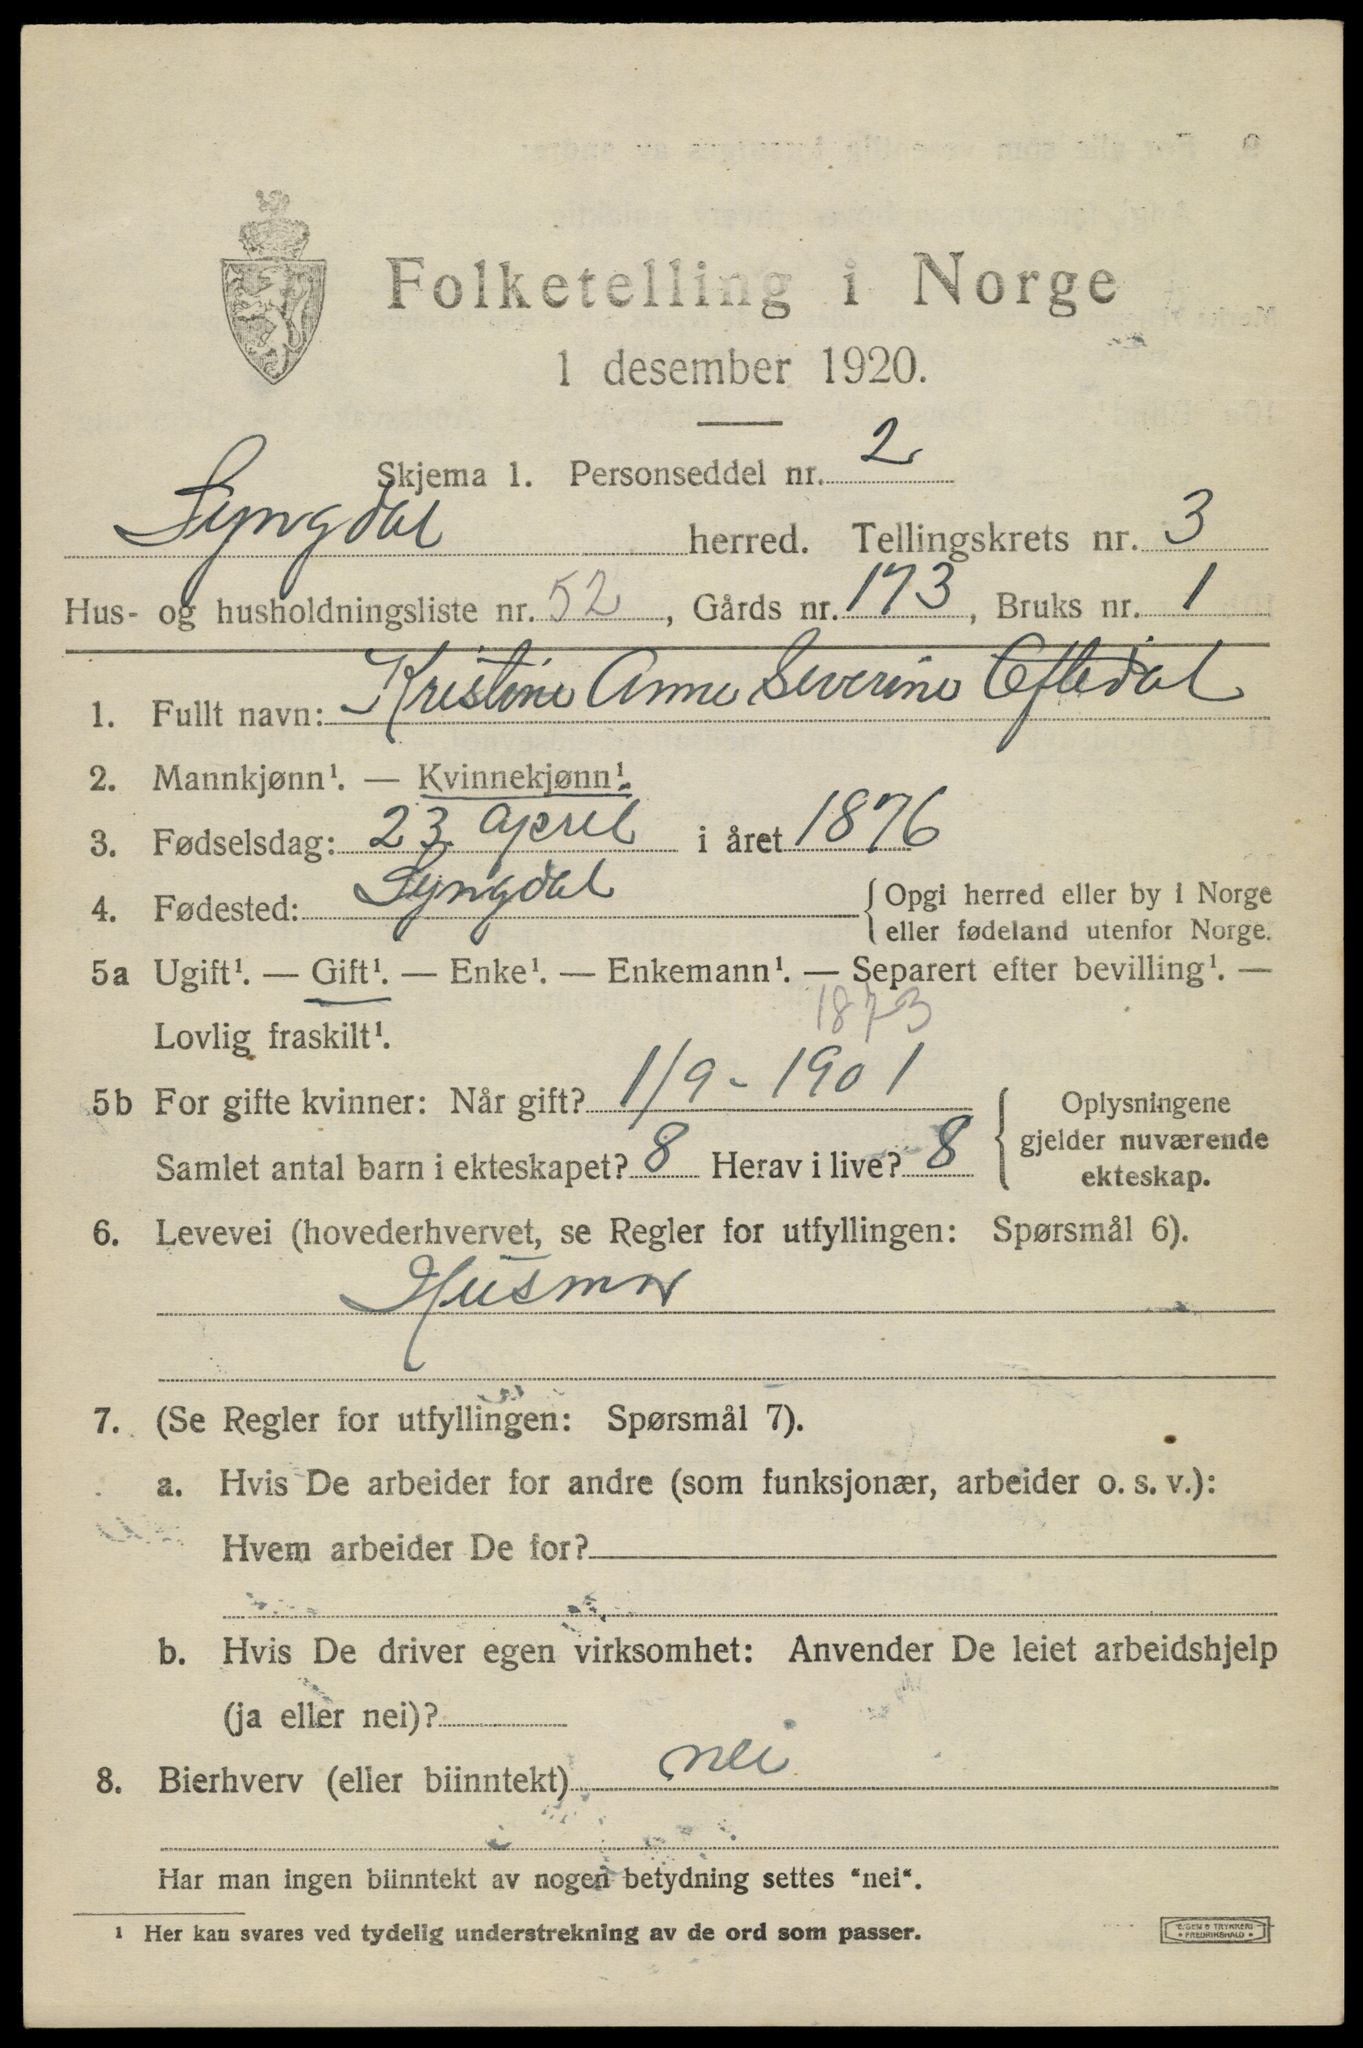 Folketelling i Norge
1 desember 1920.
Skjema 1. Personseddel nr. 2
Lyngdal herred. Tellingskrets nr. 3
Hus- og husholdningsliste nr. 52, Gårds nr. 173, Bruks nr. 1
1. Fullt navn: Kristine Anne Severine Oftedal
2. Mannkjønn¹. — Kvinnekjønn¹.
3. Fødselsdag: 23 April i året 1876
4. Fødested: Lyngdal {Opgi herred eller by i Norge
eller fødeland utenfor Norge.
5a Ugift¹. — Gift¹. — Enke¹. — Enkemann¹. — Separert efter bevilling¹. —
Lovlig fraskilt¹. 1873
5b For gifte kvinner: Når gift? 1/9 - 1901
Samlet antal barn i ekteskapet? 8 Herav i live? 8
{Oplysningene
gjelder nuværende
ekteskap.
6. Levevei (hovederhvervet, se Regler for utfyllingen: Spørsmål 6).
Husmor
7. (Se Regler for utfyllingen: Spørsmål 7).
a. Hvis De arbeider for andre (som funksjonær, arbeider o. s. v.):
Hvem arbeider De for?
b. Hvis De driver egen virksomhet: Anvender De leiet arbeidshjelp
(ja eller nei)?
8. Bierhverv (eller biinntekt) nei
Har man ingen biinntekt av nogen betydning settes "nei".
¹ Her kan svares ved tydelig understrekning av de ord som passer.
E. SEM'S TRYKKERI
• FREDRIKSHALD •